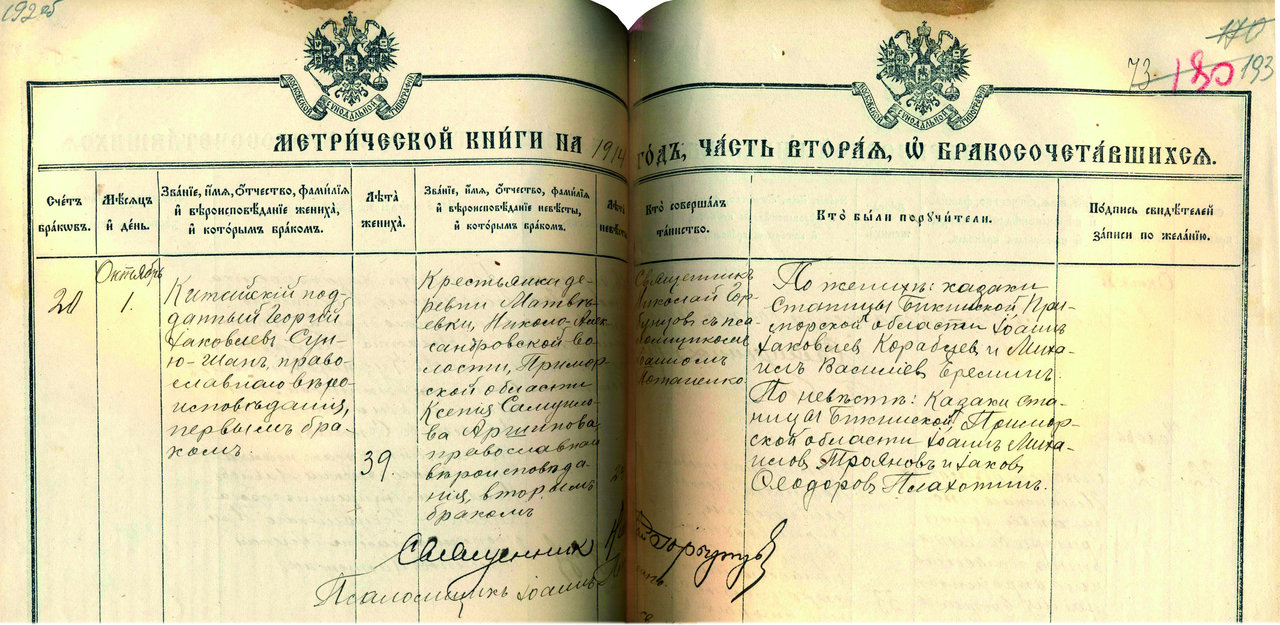 192 об
170
73 180 193
МОСКОВСКОЙ СѴНОДАЛЬНОЙ ТИПОГРАФІИ
МОСКОВСКОЙ СѴНОДАЛЬНОЙ ТИПОГРАФІИ
МЕТРИ́ЧЕСКОЙ КНИ́ГИ НА 1914 ГО́ДЪ, ЧА́СТЬ ВТОРА́Я, Ѿ БРАКОСОЧЕТА́ВШИХСЯ.
Сче́тъ
бра́ковъ.
Мѣ́сяцъ
и҆ де́нь.
Зва́нїе, и҆́мя, ѻ҆́тчество, фами́лїя
и҆ вѣроисповѣ́данїе жениха̀,
и҆ кото́рымъ бра́комъ.
Лѣ́та
жениха̀.
Зва́нїе, и҆́мя, ѻ҆́тчество, фами́лїя
и҆ вѣроисповѣ́данїе невѣ́сты,
и҆ кото́рымъ бра́комъ.
Лѣ́та
невѣ́сты
Кто̀ соверша́лъ
та́инство.
Кто̀ бы́ли порꙋчи́тели.
По́дпись свидѣ́телей
за́писи по жела́нїю.
20
Октябрь
1.
Китайскій под-
данный Георгій
Іаковлевъ Сун-
ю-Шан, право-
славнаго вѣро-
исповѣданія,
первымъ бра-
комъ.
39.
Крестьянка де-
ревни Матвѣ-
евки, Николо-Алек-
сандровской во-
лости, Примор-
ской области
Ксенія Самуило-
ва Архипова,
православнаго
вѣроисповѣда-
нія, вторымъ
бракомъ
Священникъ
Николай Гор-
бунцовъ съ пса-
ломщикомъ
Іоанномъ
Потапенко.
По женихѣ: казаки
станицы Бикинской При-
морской области Іоаннъ
Іаковлев Корабцев и Миха-
илъ Василіев Еремин.
По невѣстѣ: казаки ста-
ницы Бикинской, Примор-
ской области Іоаннъ Миха-
илов Трояновъ и Іаков
Ѳеодоров Плахотин.
Священник
Псаломщикъ Іоаннъ